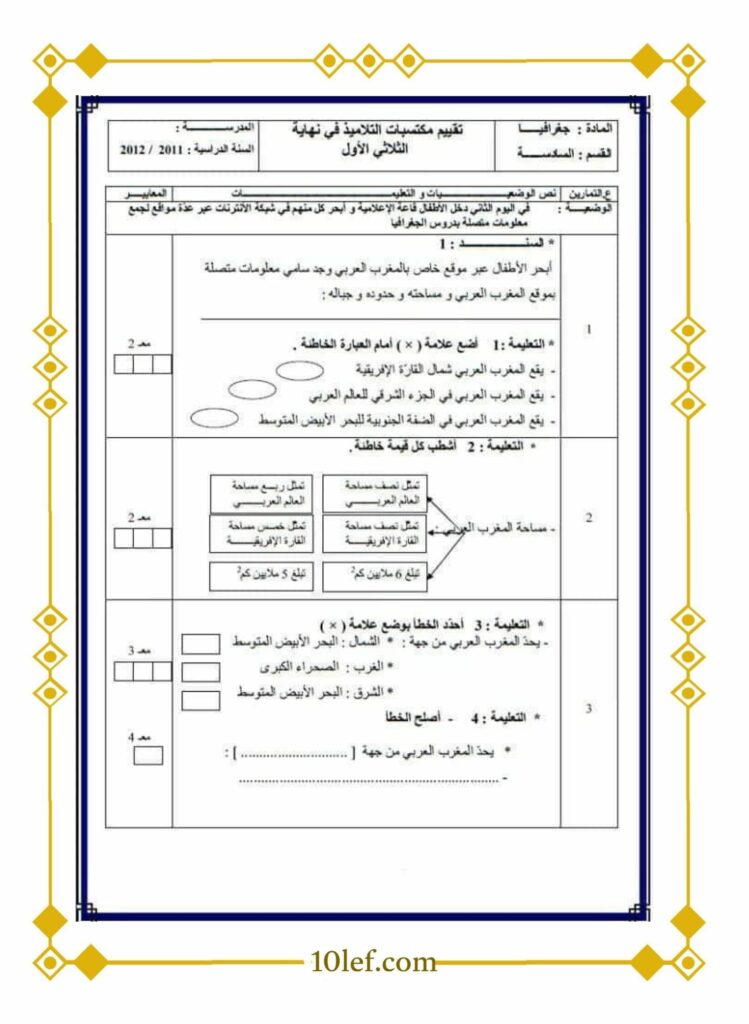 المادة : جغرافيـــا
القسم : السادســـة
تقييم مكتسبات التلاميذ في نهاية
الثلاثي الأول
المدرســـــة :
السنة الدراسية : 2011 / 2012
ع.التمارين
نص الوضعيـــــات و التعليمـــــات
المعاييـر
الوضعيـــة : في اليوم الثاني دخل الأطفال قاعة الإعلامية و أبحر كل منهم في شبكة الأنترنات عبر عدّة مواقع لجمع
معلومات متصلة بدروس الجغرافيا
* السنـــــــد : 1
أبحر الأطفال عبر موقع خاص بالمغرب العربي وجد سامي معلومات متصلة
بموقع المغرب العربي و مساحته و حدوده و جباله :
1
* التعليمة :1 أضع علامة ( × ) أمام العبارة الخاطئة .
معـ 2
- يقع المغرب العربي شمال القارّة الإفريقية
- يقع المغرب العربي في الجزء الشرقي للعالم العربي
- يقع المغرب العربي في الضفة الجنوبية للبحر الأبيض المتوسط
* التعليمة : 2 أشطب كل قيمة خاطئة .
تمثل نصف مساحة
العالم العربـــــي
تمثل ربـع مساحة
العالم العربـــــي
2
معـ 2
- مساحة المغرب العربي :
تمثل نصف مساحة
القارة الإفريقيـــة
تمثل خمس مساحة
القارة الإفريقيـــة
تبلغ 6 ملايين كم²
تبلغ 5 ملايين كم²
* التعليمة : 3 أحدّد الخطأ بوضع علامة ( × )
- يحدّ المغرب العربي من جهة : * الشمال : البحر الأبيض المتوسط
معـ 3
* الغرب : الصحراء الكبرى
* الشرق : البحر الأبيض المتوسط
3
* التعليمة : 4 - أصلح الخطأ
معـ 4
* يحدّ المغرب العربي من جهة [ ............................ ] :
- ..................................................................
10lef.com